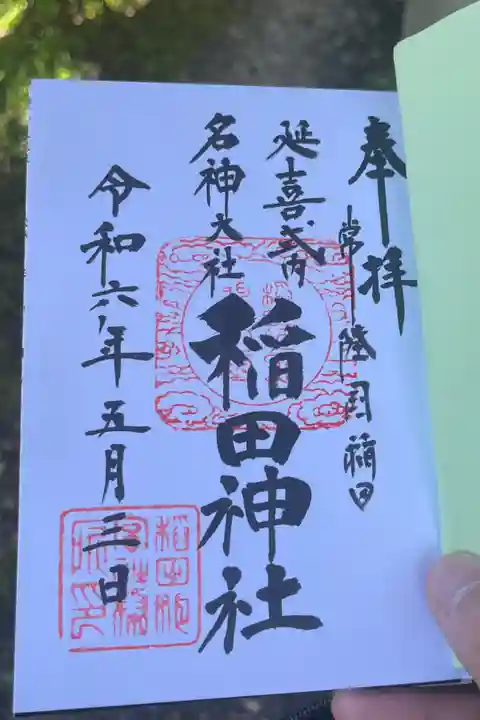 奉拝
常陸国稲田
延喜式内
名神大社
稲田神社
令和六年五月三日